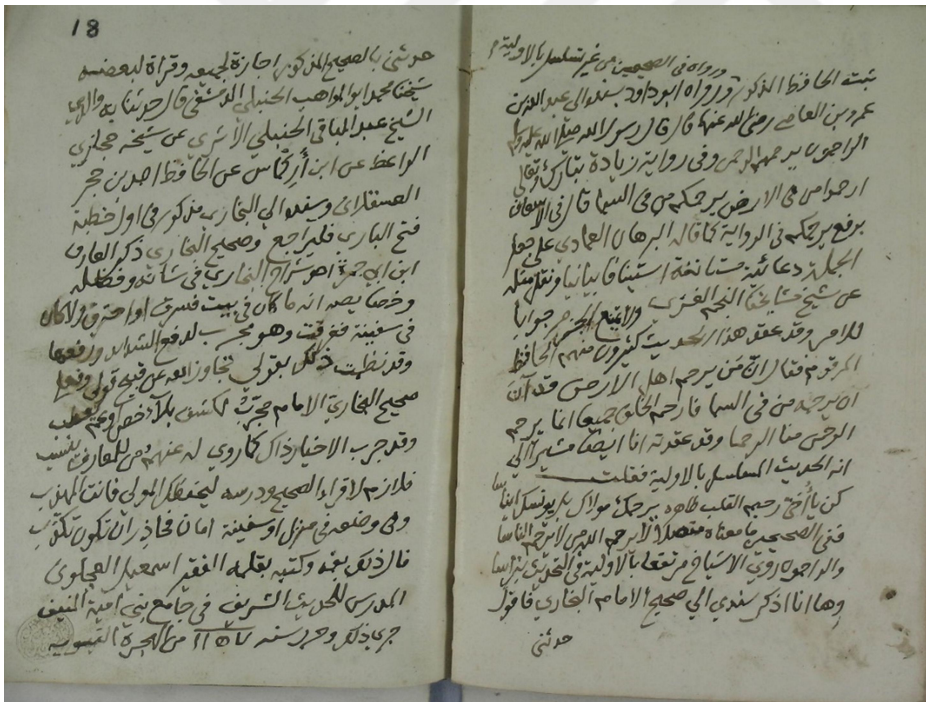 ورواه في الصحيحين من غير تسلسل بالاولية
ثبت الحافظ المذكور ورواه ابو داود بسنده الى عبد الله بن
عمرو بن العاص رضي الله عنهما قال قال رسول الله صلى الله عليه وسلم
الراحمون يرحمهم الرحمن وفي رواية زيادة تبارك وتعالى
ارحموا من في الارض يرحمكم من في السما قال في
برفع يرحمكم في الرواية كما قاله البرهان العمادي على جعل
الجملة دعائية مستانفة استينافا بيانيا ونقل مثله
عن شيخ مشايخنا النجم الغزي ولا يمتنع الجزم جوابا
للامر وقد عقد هذا الحديث كثيرون منهم الحافظ
المرقوم فقال ان من يرحم اهل الارض قد آن
ان يرحمه من في السما فارحم الخلق جميعا انما يرحم
الرحمن منا الرحما وقد عقدته انا ايضا مشيرا الى
انه الحديث المسلسل بالاولية فقلت
كن يا أخي رحيم القلب طاهره يرحمك مولاك
ففي الصحيحين ما معناه متصلا لا يرحم الله من لا يرحم الناسا
والراحمون روي الاشياخ مرتفعا بالاولية في التحديث
وها انا اذكر سندي الى صحيح الامام البخاري فاقول
حدثني
18
حدثني بالصحيح المذكور اجازة لجميعه وقراة لبعضه
شيخنا محمد ابو المواهب الحنبلي الدمشقي قال حدثنا به والدي
الشيخ عبد الباقي الحنبلي الاثري عن شيخه حجازي
الواعظ عن ابن أركماس عن الحافظ احمد بن حجر
العسقلاني وسنده الى البخاري مذكور في اول خطبة
فتح الباري فليراجع وصحيح البخاري ذكر العارف
ابن ابي جمرة احد شراح البخاري في شانه وفضله
وخصايصه انه ما كان في بيت فسرق او احترق ولا كان
في سفينة فغرقت وهو مجرب لدفع الشدايد ورفعها
وقد نظمت ذلك بقولي تجاوز الله عن قبيح قولي وفعلي
صحيح البخاري الامام مجرب لكشف بلآء خص وعم
وقد جرب الاخيار ذاك كما روي له عنهم من للمعارف ينسب
فلازم لاقراء الصحيح ودرسه ليحفظك المولى فانت المهذب
وفي وضعه في منزل او سفينة امان فحاذر ان تكون تكذب
قال ذلك بفمه وكتبه بقلمه الفقير اسمعيل العجلوني
المدرس للحديث الشريف في جامع بني امية المنيف
جرى ذلك وحرر سنه من الهجرة النبويه